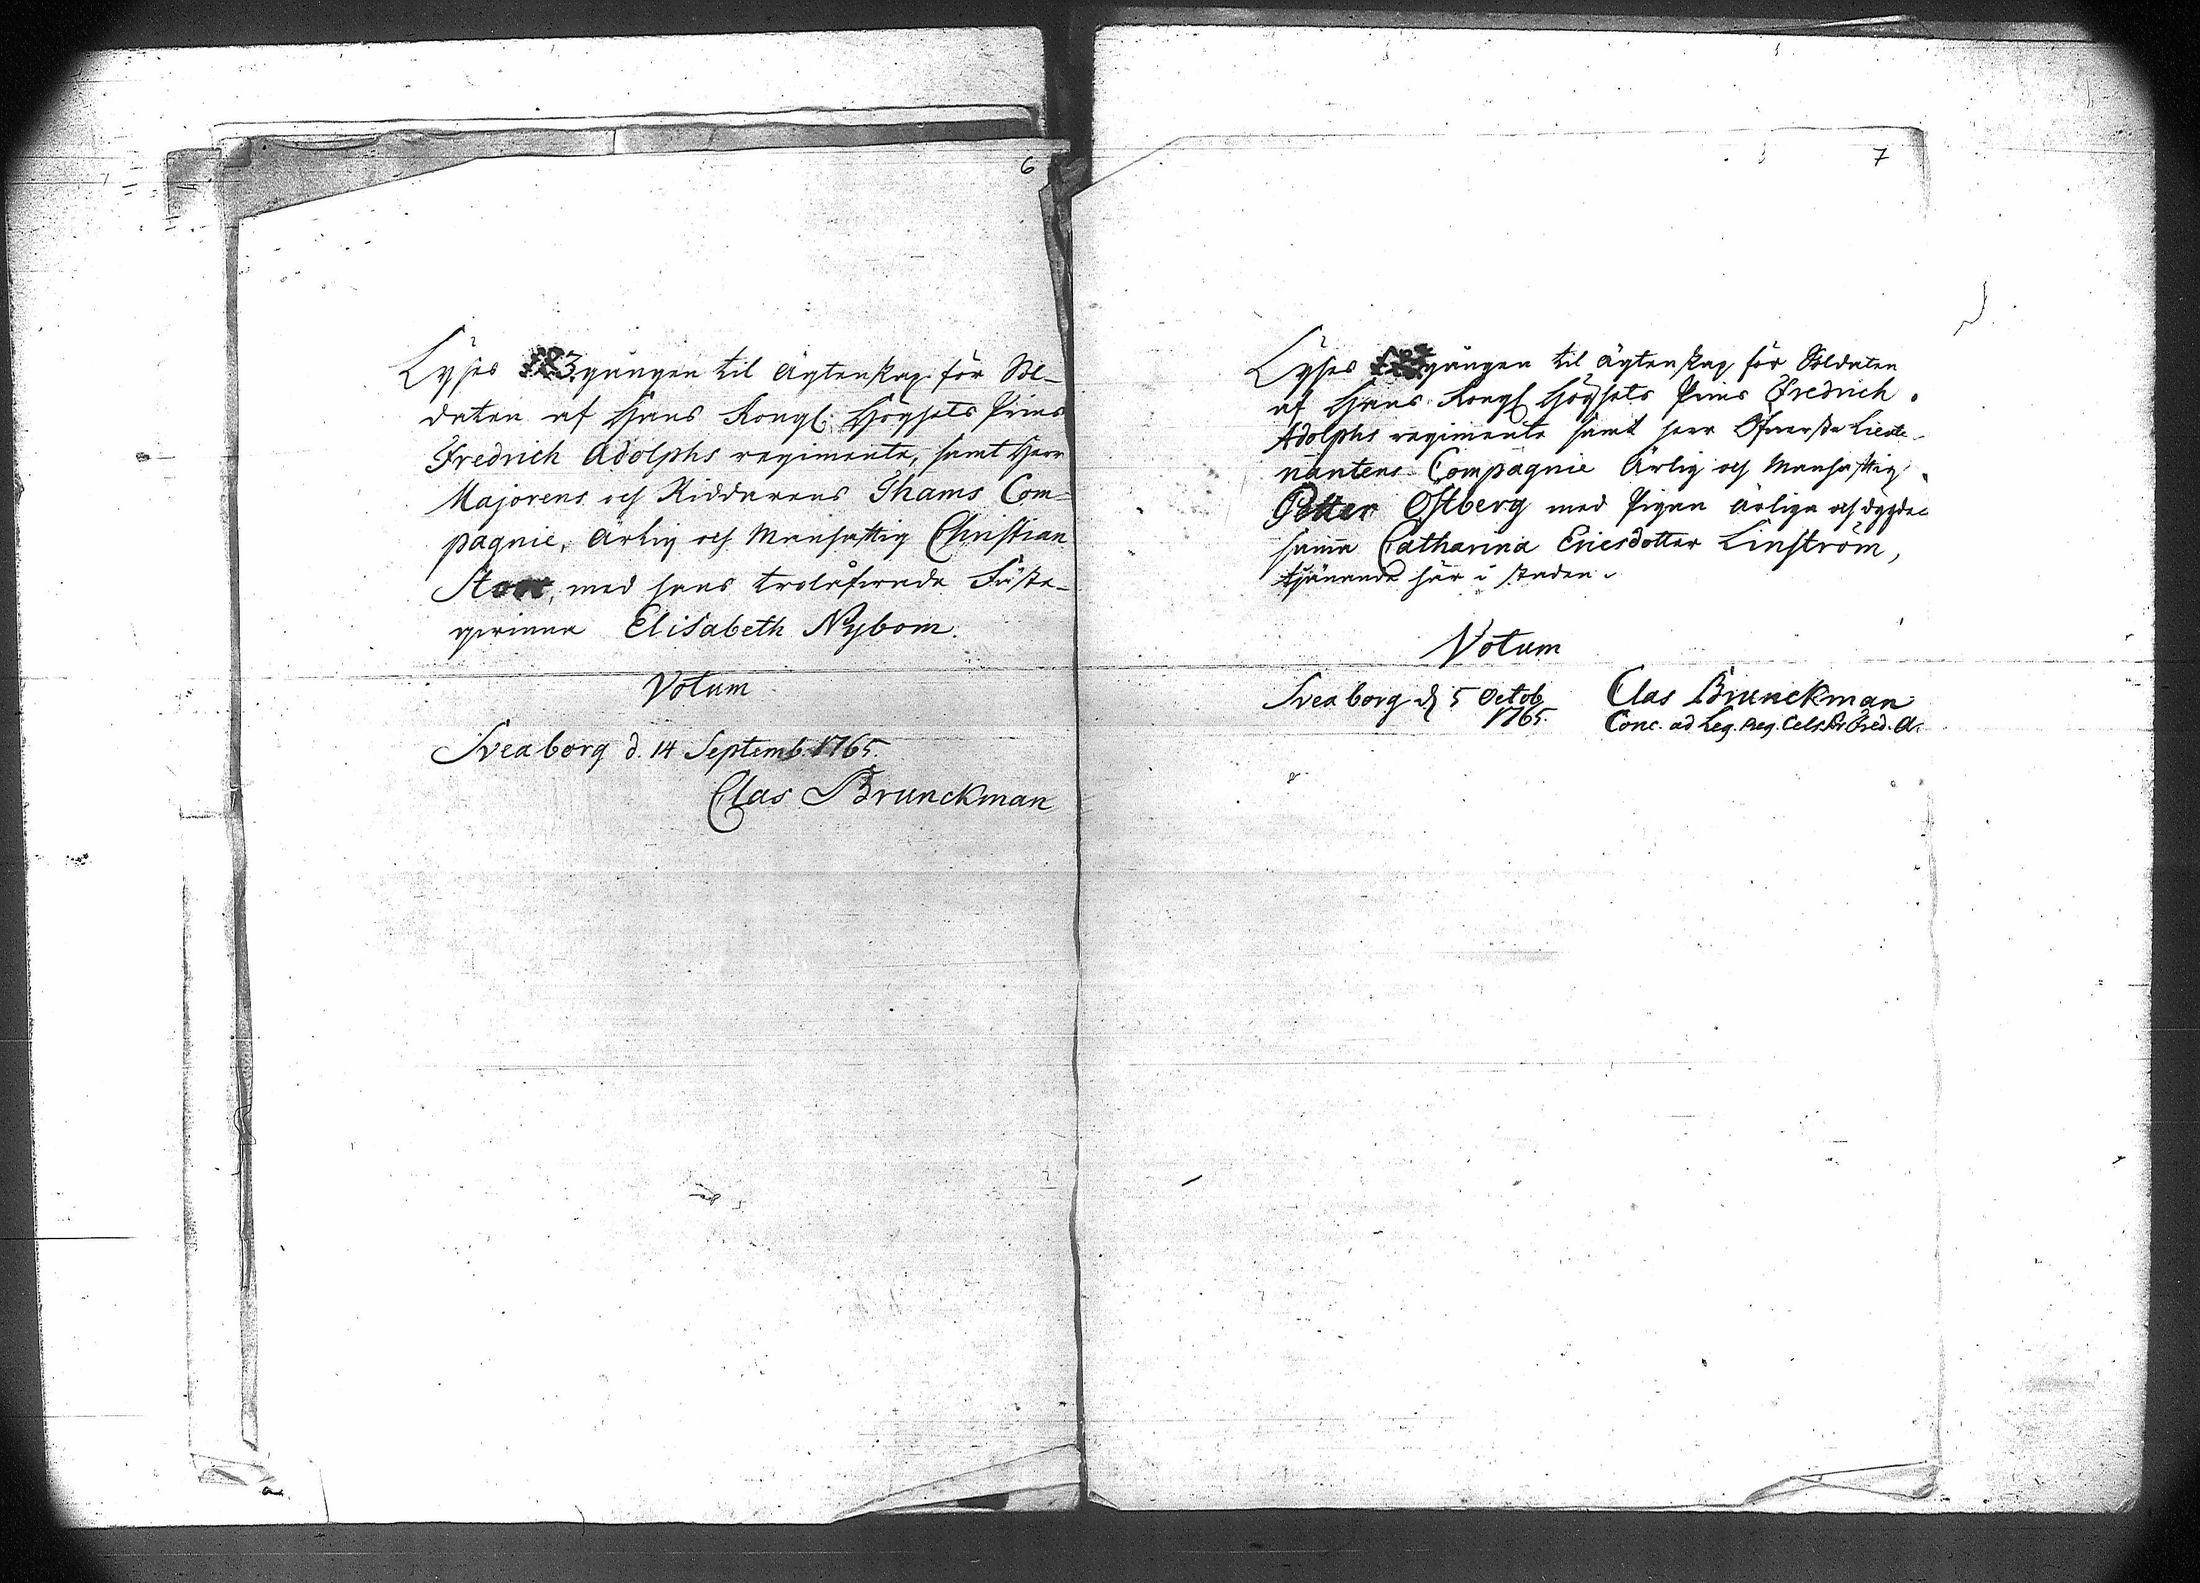 6
Lyses 3 gången til ägtenskap för Sol-
daten af Hans Kongl: Höghets Prins
Fredrich Adolphs regimente, samt Herr
Majorens och Riddarens Thams Com=
pagnie, ärlig och Manhaftig Christian
med hans trolåfwade Fäste-
qwinna Elisabeth Nybom.
Votum
Sveaborg d. 14 Septemb. 1765.
Clas Brunckman
7
Lyses gången til ägtenskap för Soldaten
af Hans Kongl Höghets Prins Fredrich
Adolphs regimente samt herr Öfwerste Lieute-
nantens Compagnie Ärlig och Manhaftig
Petter Ostberg med Pigan ärliga och dygde-
samma Catharina Ericsdotter Linström,
tjänande här i staden.
Votum
Sveaborg d 5 Octob
1765.
Clas Brunckman
Conc. ad Leg. Reg. Cels. Pr. Fred. A.